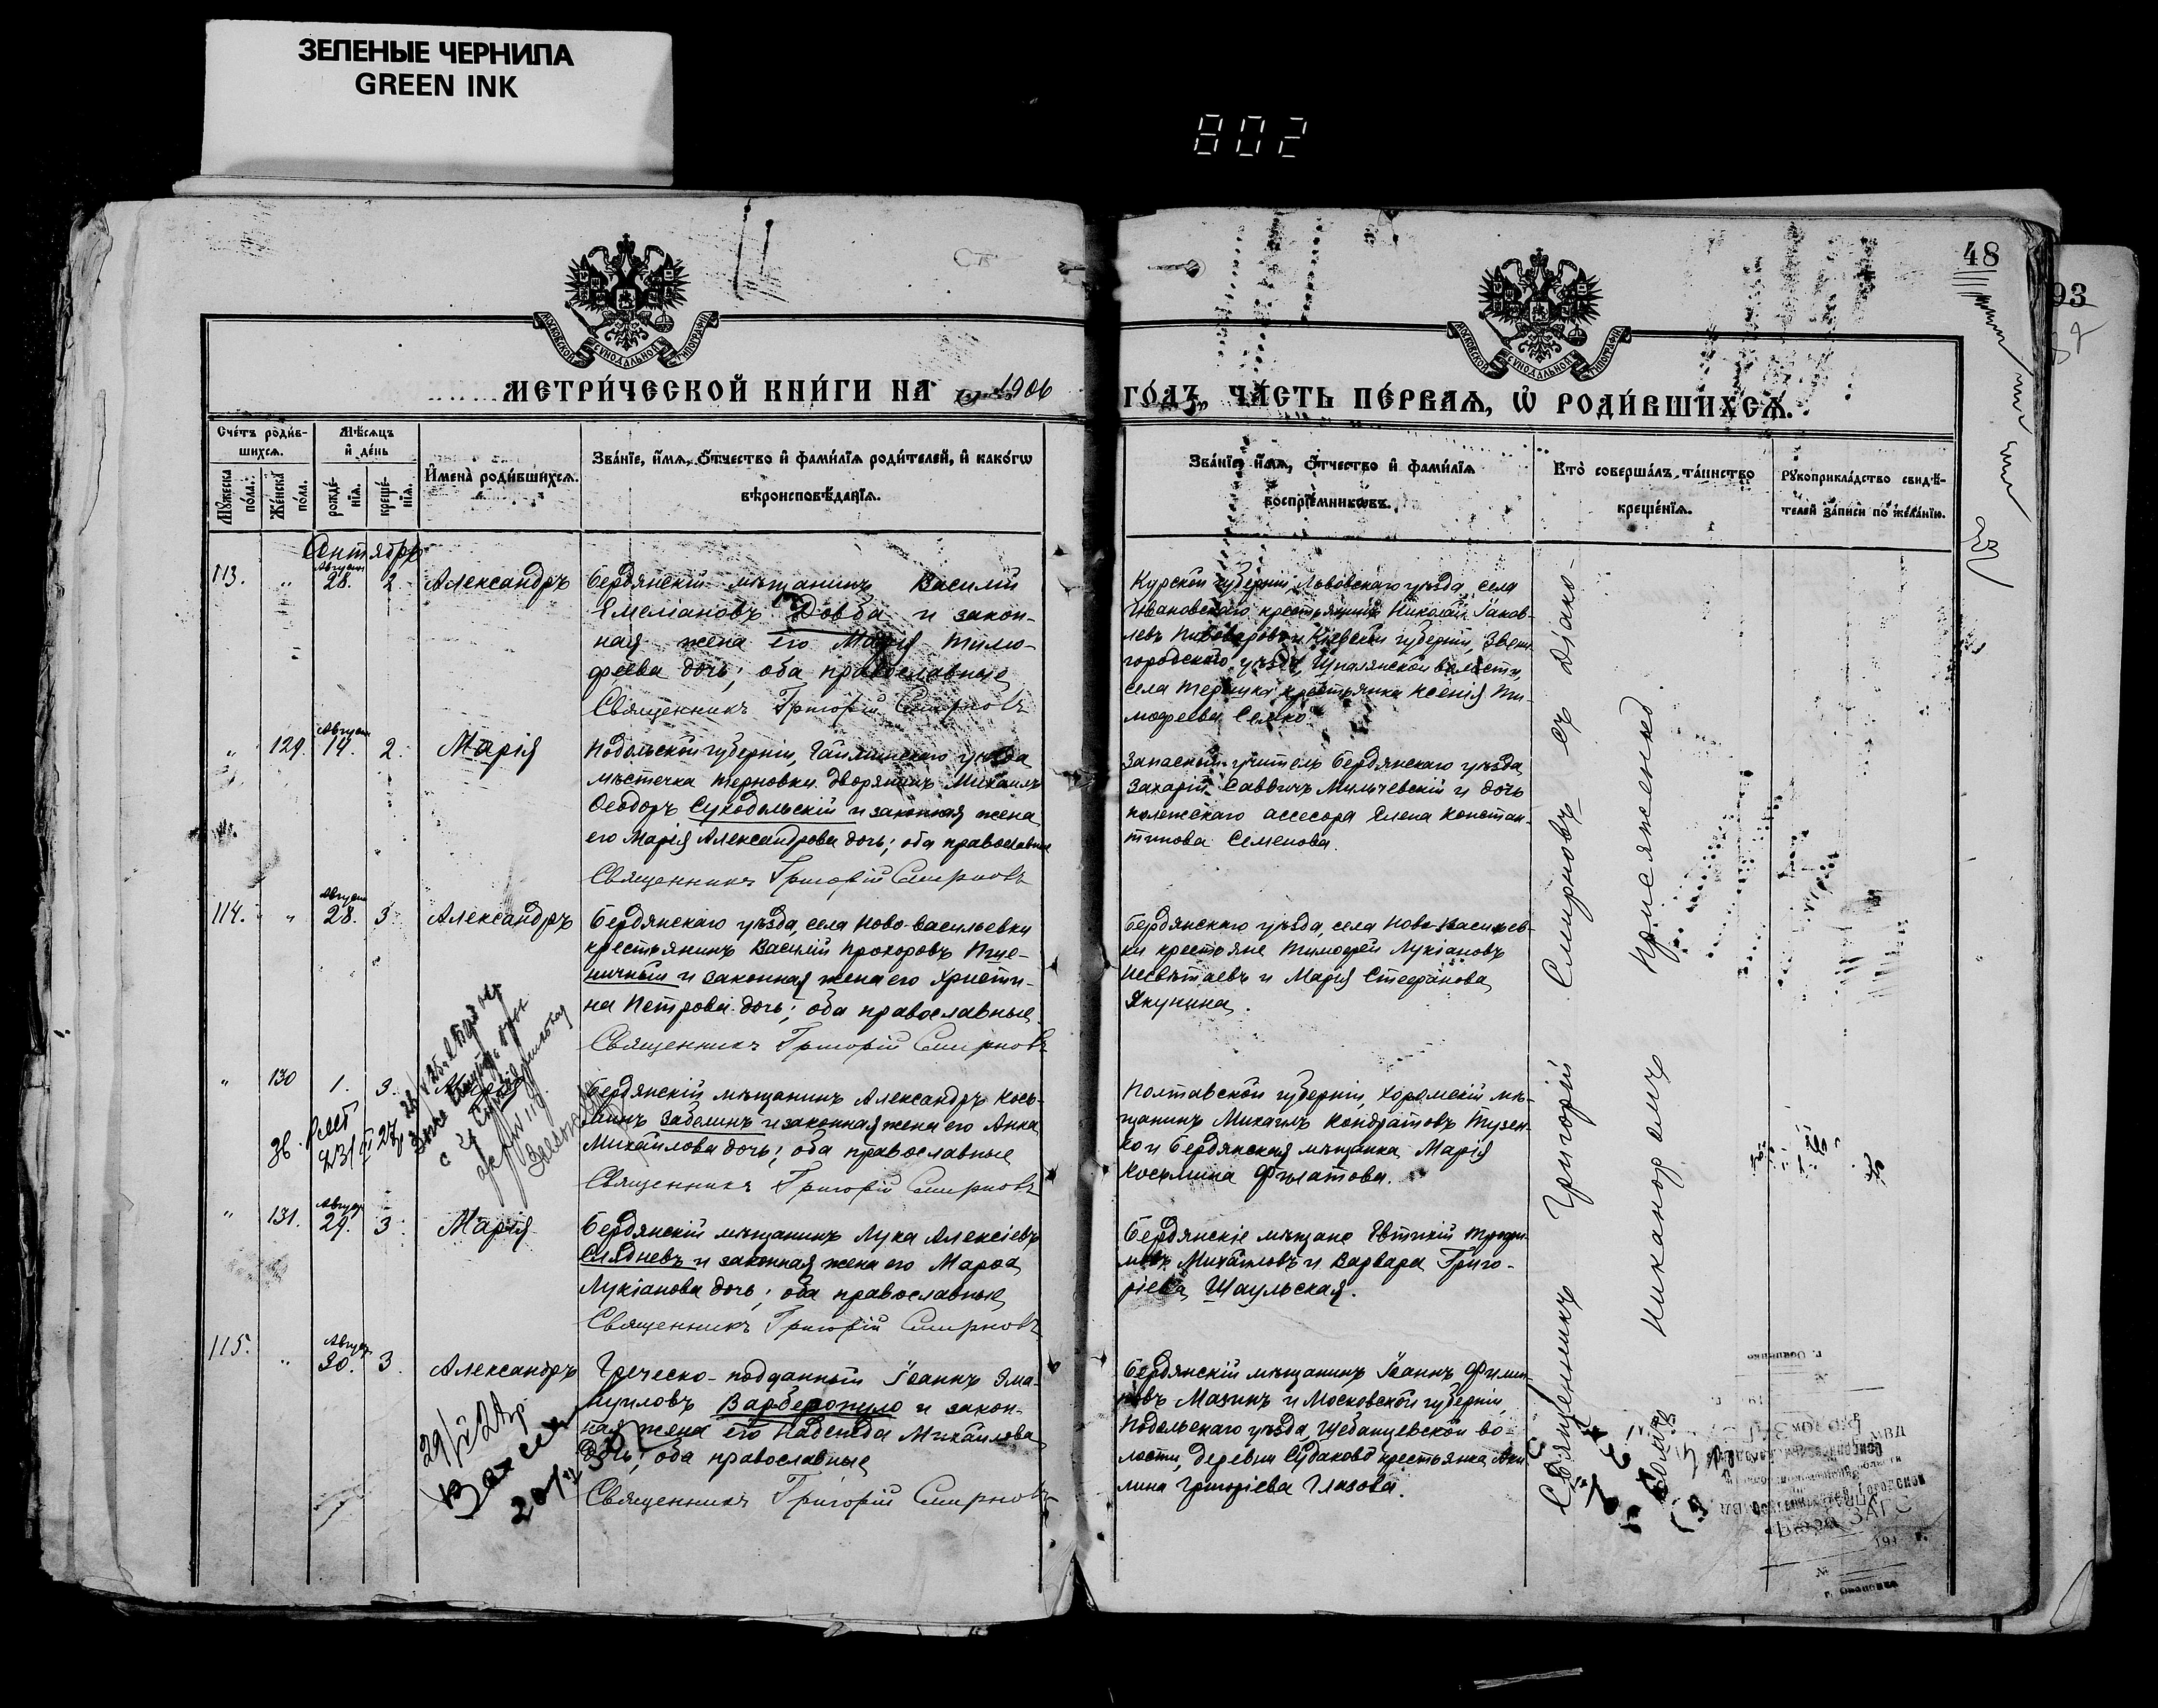 ЗЕЛЕНЫЕ ЧЕРНИЛА
GREEN INK
802
48
93
МОСКОВСКОЙ СУНОДАЛЬНОЙ ТИПОГРАФІИ
МОСКОВСКОЙ СУНОДАЛЬНОЙ ТИПОГРАФІИ
МЕТРИ́ЧЕСКОЙ КНИ́ГИ НА 1906
ГО́ДЪ, ЧА́СТЬ ПЕ́РВАЯ, Ѡ РОДИ́ВШИХСЯ.
Сче́тъ роди́в-
шихся.
Мѣ́сяцъ
и҆ де́нь
Мꙋ́жеска по́ла.
Же́нска по́ла.
рожде́-
нїя.
креще́-
нїя.
И҆мена̀ роди́вшихся.
Зва́нїе, и҆́мя, ѻ҆́тчество и҆ фами́лїя роди́телей, и҆ како́гѡ
вѣроисповѣ́данїя.
Зва́нїе, и҆́мя, ѻ҆́тчество и҆ фами́лїя
воспрїе́мникѡвъ.
Кто̀ соверша́лъ та́инство
креще́нїя.
Рꙋкоприкла́дство свидѣ́-
телей за́писи по жела́нїю.
Сентябрь
113. " Август 28. 2 Александръ
Бердянскій мѣщанинъ Василій
Емеліановъ Довба и закон-
ная жена его Марія Тимо-
феева дочь; оба православные
Священникъ Григорій Смирновъ
Курской губерніи, Львовскаго уѣзда, села
Ивановскаго крестьянинъ Николай Іаков-
левъ Пивоваровъ и Кіевской губерніи, Звени-
городскаго уѣзда, волости,
села крестьянка Ксенія Ти-
мофеева
" 129. Август 14. 2. Марія
Подольской губерніи, Гайсинскаго уѣзда
мѣстечка Терновки дворянинъ Михаилъ
Ѳеодоръ Суходольскій и законная жена
его Марія Александрова дочь; оба православные
Священникъ Григорій Смирновъ
Запасный учитель Бердянскаго уѣзда
Захарій Саввичъ Мильчевскій и дочь
коллежскаго ассесора Елена Констан-
тинова Семенова.
114. " Август 28. 3 Александръ
Бердянскаго уѣзда, села Ново-Васильевки
крестьянинъ Василій Прохоровъ Пше-
ничный и законная жена его Христи-
на Петрова дочь; оба православные
Священникъ Григорій Смирновъ
Бердянскаго уѣзда, села Ново-Васильев-
ки крестьяне Тимофей Лукіановъ
Несвѣтаевъ и Марія Стефанова
Якунина.
" 130 1. 3.
Бердянскій мѣщанинъ Александръ Кось-
минъ Забелинъ и законная жена его Анна
Михайлова дочь; оба православные
Священникъ Григорій Смирновъ
Полтавской губерніи, Хорольскій мѣ-
щанинъ Михаилъ Кондратовъ Тузен-
ко и Бердянская мѣщанка Марія
Косьмина Филатова.
" 131. Август 29. 3 Марія
Бердянскій мѣщанинъ Лука Алексіевъ
Слѣдневъ и законная жена его Марѳа
Лукіанова дочь; оба православные
Священникъ Григорій Смирновъ
Бердянскіе мѣщане Евтихій Трофи-
мовъ Михайловъ и Варвара Григо-
ріева Шаульская.
115. " Август 30. 3 Александръ
Греческо-подданный Іоаннъ Эма-
нуиловъ Варберопуло и закон-
ная жена его Надежда Михайлова
дочь; оба православные
Священникъ Григорій Смирновъ
Бердянскій мѣщанинъ Іоаннъ Филип-
повъ Мазинъ и Московской губерніи,
Подольскаго уѣзда, Щебанцевской во-
лости, деревни Судаково крестьянка Аки-
лина Григоріева Глазова.
Священникъ Григорій Смирновъ съ діако-
Никаноромъ Присяженко